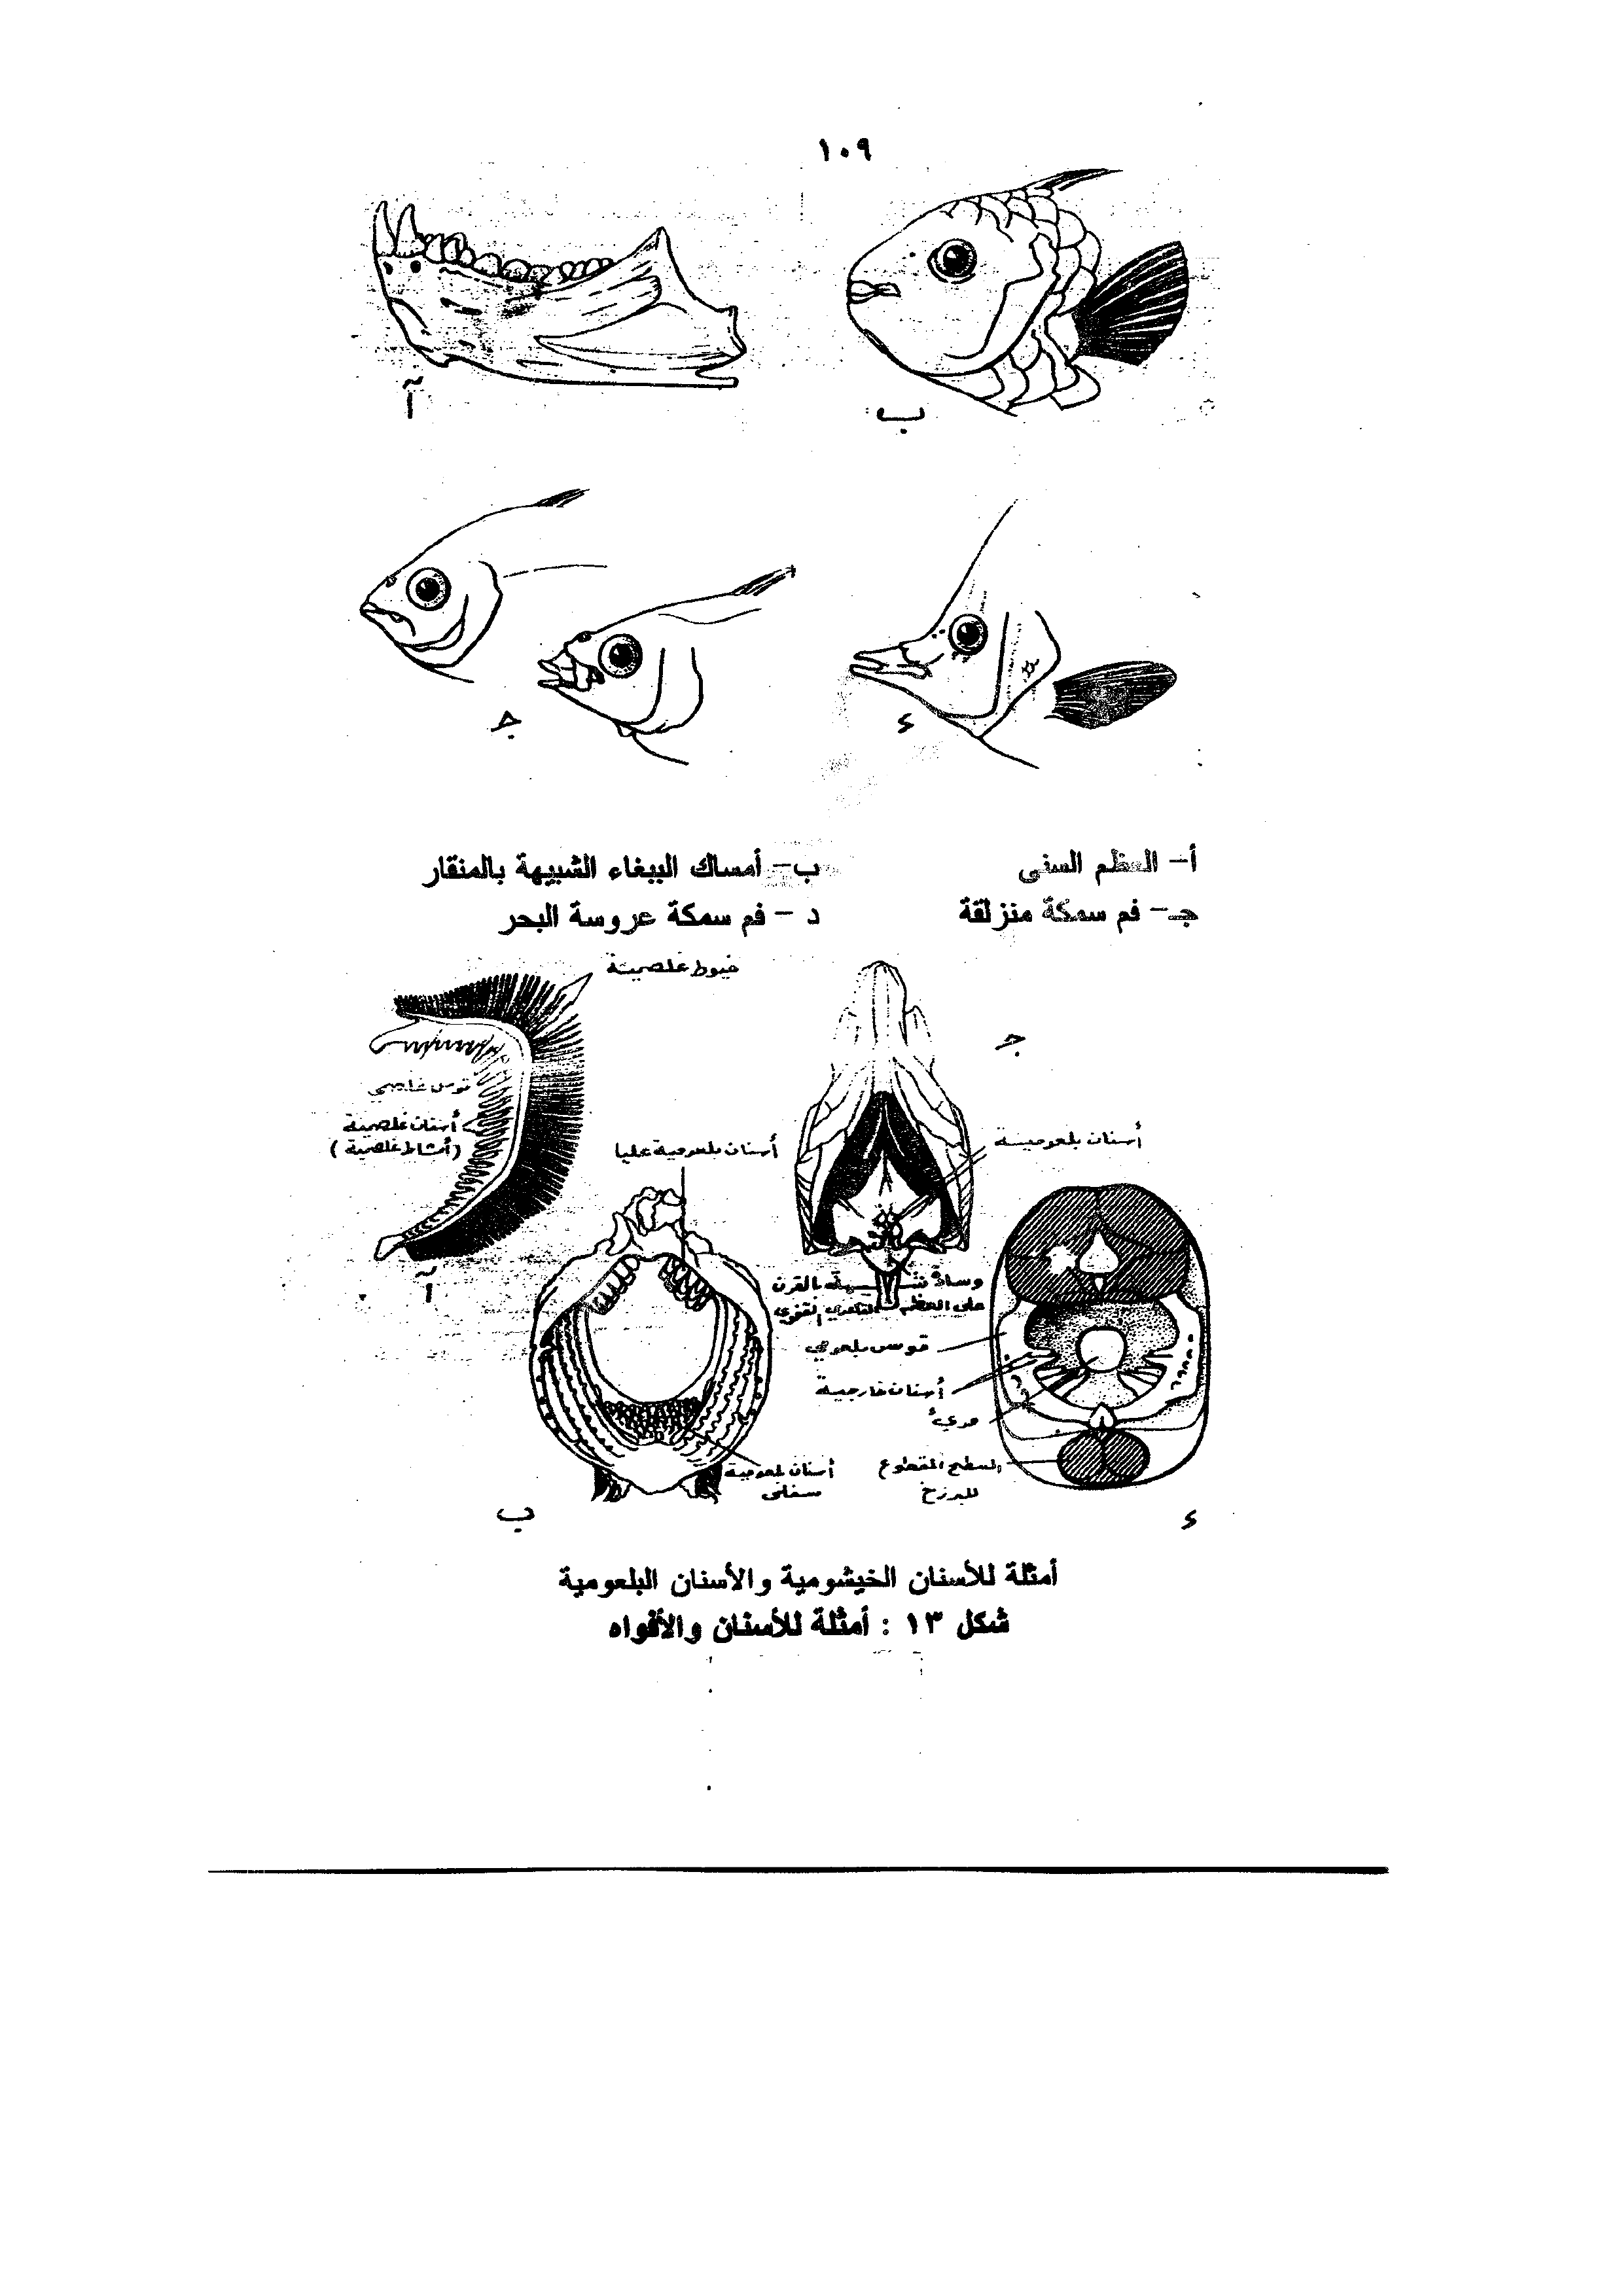 ١٠٩
آ
ب
جـ
د
أ- العظم السنى
ب- أمساك الببغاء الشبيهة بالمنقار
جـ- فم سمكة منزلقة
د - فم سمكة عروسة البحر
خيوط غلصمية
جـ
قوس غلصمي
أسنان غلصمية
(أمشاط غلصمية)
أسنان بلعومية عليا
أسنان بلعومية
آ
وسادة شبيهة بالقرن
على العظم القاعدي القفوي
قوس بلعومي
أسنان خارجية
مريء
أسنان بلعومية
سفلى
السطح المقطوع
للبرزخ
ب
د
أمثلة للأسنان الخيشومية والأسنان البلعومية
شكل ١٣ : أمثلة للأسنان والأفواه